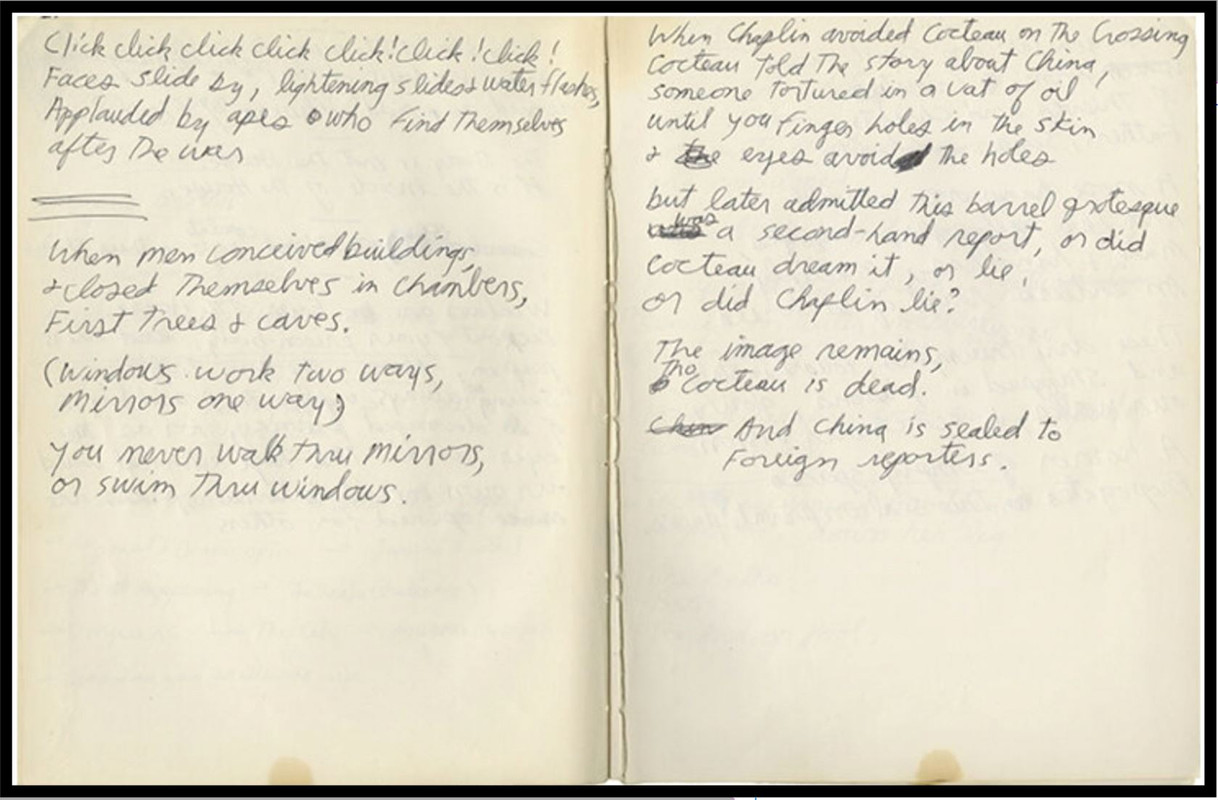 Click click click click click! Click! click!
Faces slide by, lightening slides & water flashes,
Applauded by apes who find Themselves
after The war
When men conceived buildings,
& closed Themselves in chambers,
First Trees & caves.
(Windows work two ways,
mirrors one way)
You never walk thru mirrors,
or swim Thru windows.
When Chaplin avoided Cocteau on The Crossing
Cocteau Told The story about China,
someone Tortured in a vat of oil
until you finger holes in The skin
& eyes avoid The holes
but later admitted This barrel grotesque
was a second-hand report, or did
Cocteau dream it, or lie,
or did Chaplin lie?
The image remains,
Tho Cocteau is dead.
And China is sealed to
Foreign reporters.